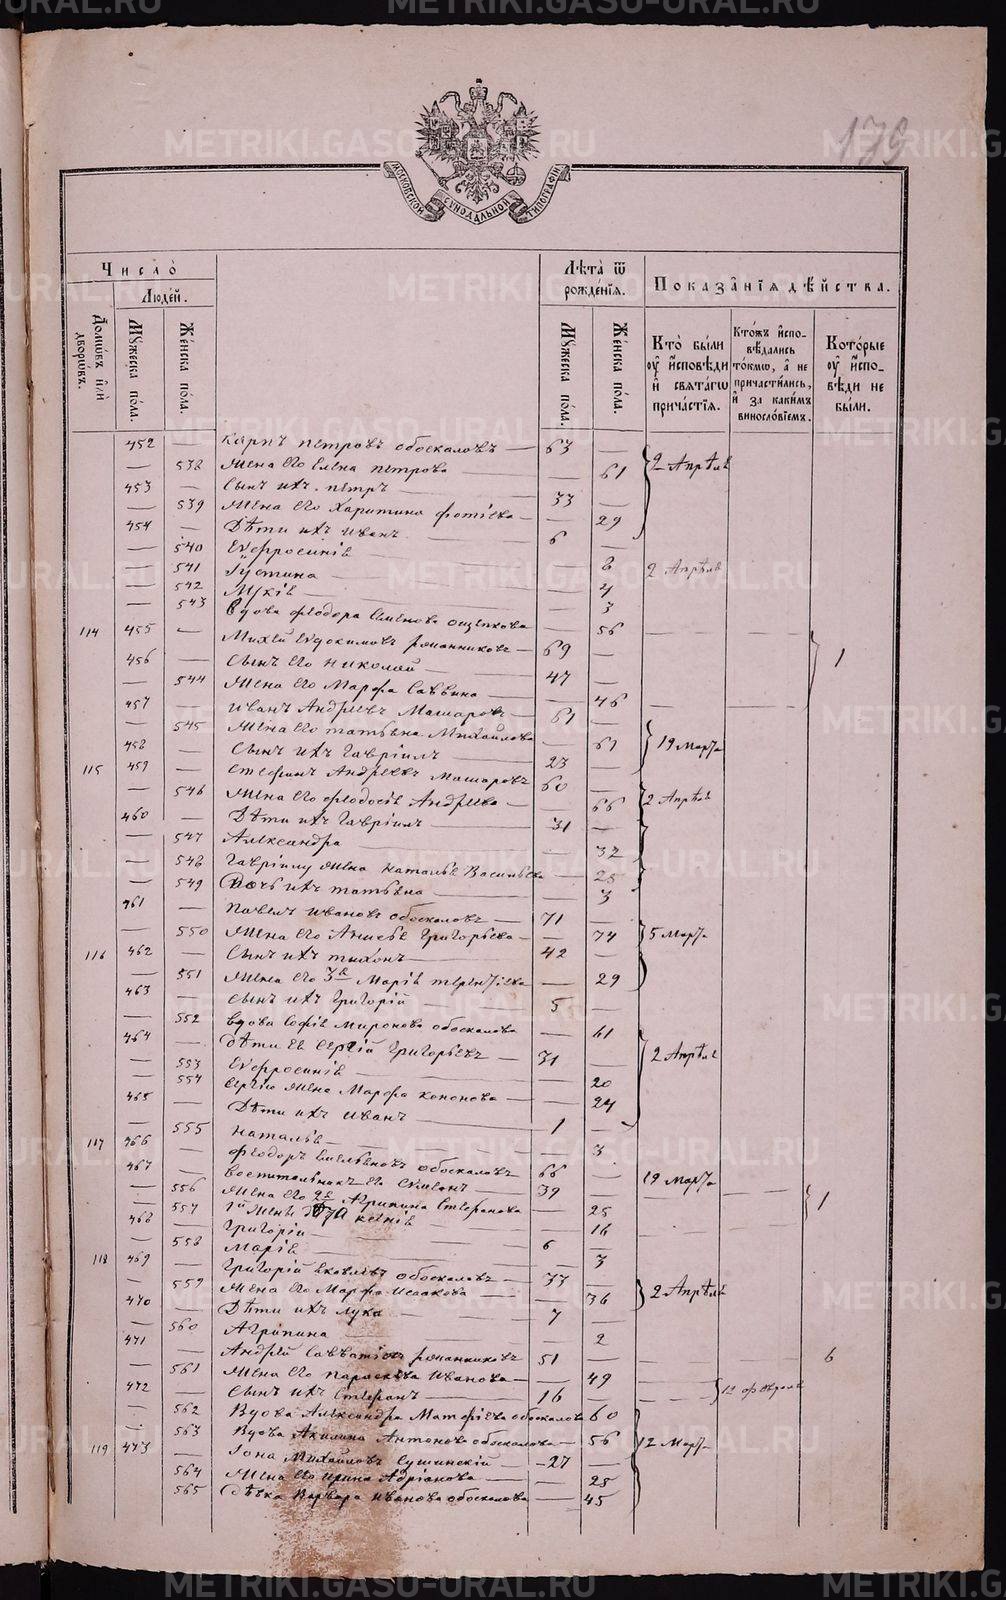 179
МОСКОВСКОЙ СѴНОДАЛЬНОЙ ТИПОГРАФІИ
Число
Людей.
Домовъ или дворовъ.
Мужеска пола.
Женска пола.
Лѣта ѿ рожденія.
Мужеска пола.
Женска пола.
Показанія дѣйства.
Кто были оу исповѣди и святагѡ причастія.
Ктожъ исповѣдались токмѡ, а не причастились, и за какимъ винословіемъ.
Которые оу исповѣди не были.
452 — Карпъ Петровъ Обоскаловъ — 63 —
— 538 Жена его Елена Петрова 61 2 Апрѣля
453 — Сынъ ихъ Петръ — 33 —
— 539 Жена его Харитина Фотіева — 29
454 — Дѣти ихъ Иванъ 6 —
— 540 Евфросинія — 8
— 541 Іустина — 4 2 Апрѣля
— 542 — 3
— 543 Вдова Феодора Семенова — 56
114 455 — Михей Евдокимовъ Романниковъ — 69 — 1
456 — Сынъ его Николай — 47 —
— 544 Жена его Марфа Саввина — 46
457 — Иванъ Андреевъ Машаровъ — 61 —
— 545 Жена его Татьяна Михайлова — 61 19 Марта
458 — Сынъ ихъ Гавріилъ — 23 —
115 459 — Стефанъ Андреевъ Машаровъ 60 —
— 546 Жена его Феодосія Андреева — 66 2 Апрѣля
460 — Дѣти ихъ Гавріилъ — 31 —
— 547 Александра — 32
— 548 Гавріилу жена Наталья Васильева — 25
— 549 Дочь ихъ Татьяна — 3
461 — Павелъ Ивановъ Обоскаловъ — 71 —
— 550 Жена его Анисья Григорьева — 74 5 Марта
116 462 — Сынъ ихъ Тихонъ — 42 —
— 551 Жена его 3я Марія Терентіева — 29
463 — Сынъ ихъ Григорій — 5 —
— 552 Вдова Софія Миронова Обоскалова — 61
464 — Дѣти ея Сергій Григорьевъ — 31 — 2 Апрѣля
— 553 Евфросинія — 20
— 554 Сергію жена Марфа Кононова — 24
465 — Дѣти ихъ Иванъ — 1 —
— 555 Наталья — 3
117 466 — Феодоръ Емельяновъ Обоскаловъ 66 — 19 Марта
467 — Воспитанникъ его Симеонъ — 39 — 1
— 556 Жена его 2я Агрипина Стефанова — 25
— 557 — 16
468 — Григорій — 6 —
— 558 Марія — 3
118 469 — Григорій Яковлевъ Обоскаловъ — 37 —
— 559 Жена его Марфа Исаакова — 36 2 Апрѣля
470 — Дѣти ихъ Лука — 7 —
— 560 Агрипина — 2
471 — Андрей Савватіевъ Романниковъ 51 — 6
— 561 Жена его Параскева Иванова — 49
472 — Сынъ ихъ Стефанъ — 16 — 12 Февраля
— 562 Вдова Александра Матфіева Обоскалова 60
— 563 Вдова Акилина Антонова Обоскалова — 56 12 Марта
119 473 — Іона Михайловъ Сушинскій — 27 —
— 564 Жена его Ирина Адріанова — 25
— 565 Дѣвка Варвара Иванова Обоскалова — 45
METRIKI.GASO-URAL.RU